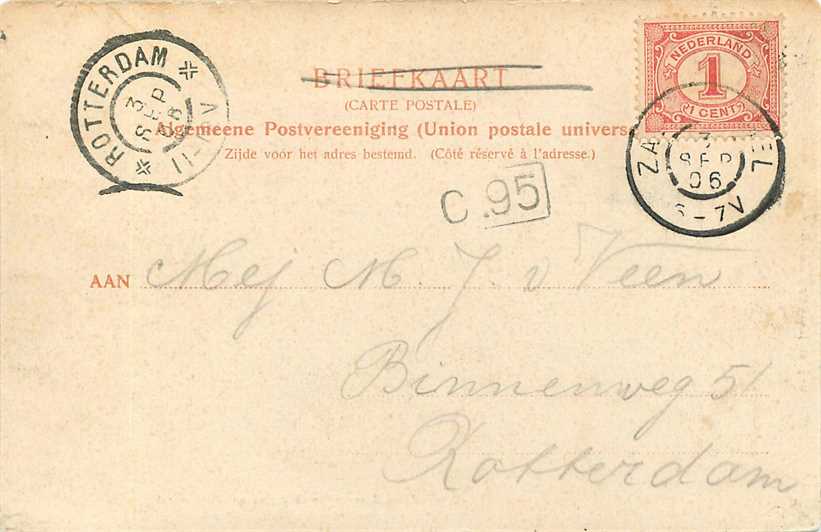 ROTTERDAM
3 SEP
BRIEFKAART
(CARTE POSTALE)
Algemeene Postvereeniging (Union postale univers
Zijde voor het adres bestemd. (Côté réservé à l'adresse.)
NEDERLAND
1
1 CENT
3
SEP
06
6-7V
C .95
AAN Mej M. J. v Veen
Binnenweg 51
Rotterdam